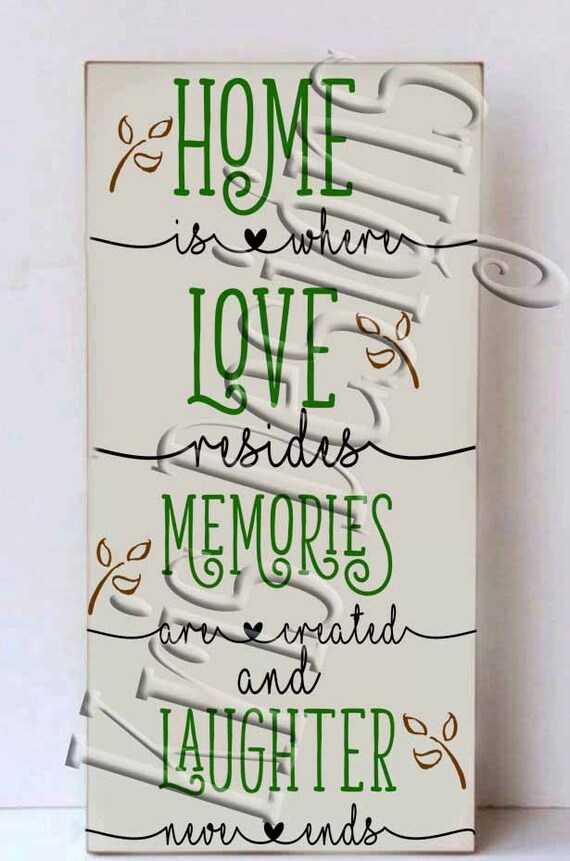 HOME
is where
LOVE
resides
MEMORIES
are created
and
LAUGHTER
neve ends
Kris Designs